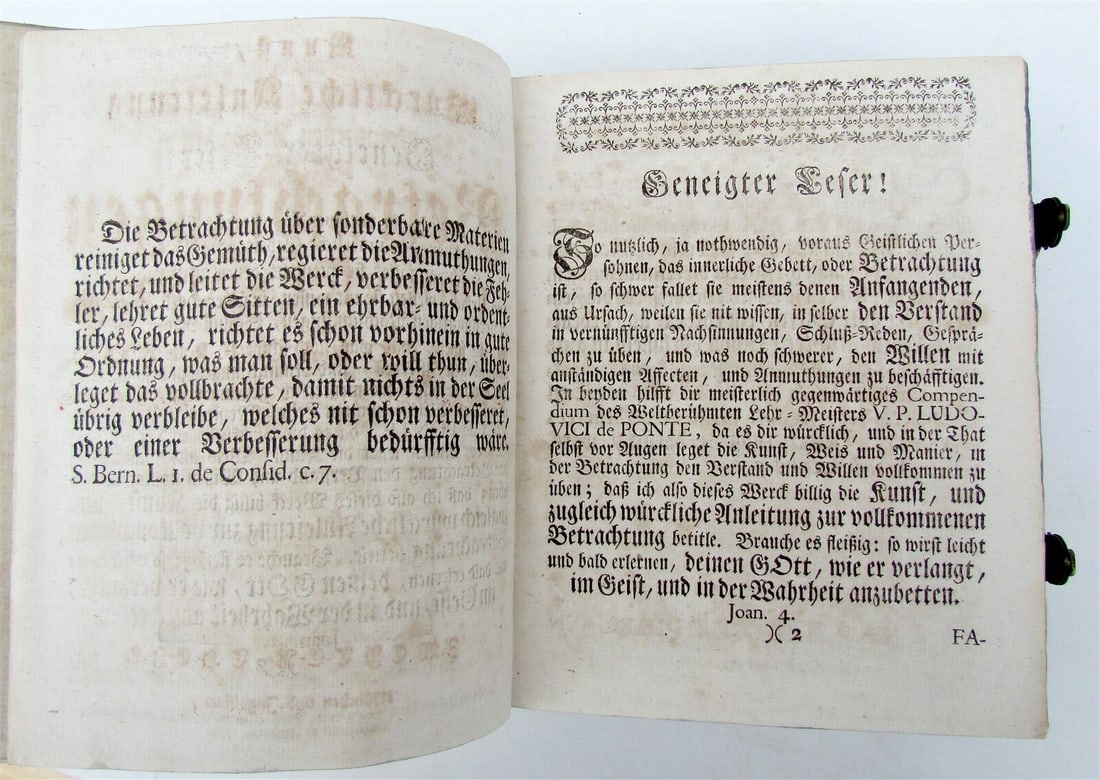 Die Betrachtung über sonderbare Materien
reiniget das Gemüth, regieret die Anmuthungen,
richtet, und leitet die Werck, verbesseret die Feh-
ler, lehret gute Sitten, ein ehrbar- und ordent-
liches Leben, richtet es schon vorhinein in gute
Ordnung, was man soll, oder will thun, über-
leget das vollbrachte, damit nichts in der Seel
übrig verbleibe, welches nit schon verbesseret,
oder einer Verbesserung bedürfftig wäre.
S. Bern. L. 1. de Consid. c. 7.
Geneigter Leser!
So nutzlich, ja nothwendig, voraus Geistlichen Per-
sohnen, das innerliche Gebett, oder Betrachtung
ist, so schwer fallet sie meistens denen Anfangenden,
aus Ursach, weilen sie nit wissen, in selber den Verstand
in vernünfftigen Nachsinnungen, Schluß-Reden, Gesprä-
chen zu üben, und was noch schwerer, den Willen mit
anständigen Affecten, und Anmuthungen zu beschäfftigen.
In beyden hilfft dir meisterlich gegenwärtiges Compen-
dium des Weltberühmten Lehr-Meisters V. P. LUDO-
VICI de PONTE, da es dir würcklich, und in der That
selbst vor Augen leget die Kunst, Weis und Manier, in
der Betrachtung den Verstand und Willen vollkommen zu
üben; daß ich also dieses Werck billig die Kunst, und
zugleich würckliche Anleitung zur vollkommenen
Betrachtung betitle. Brauche es fleißig: so wirst leicht
und bald erlernen, deinen GOtt, wie er verlangt,
im Geist, und in der Wahrheit anzubetten.
Joan. 4.
)( 2 FA-